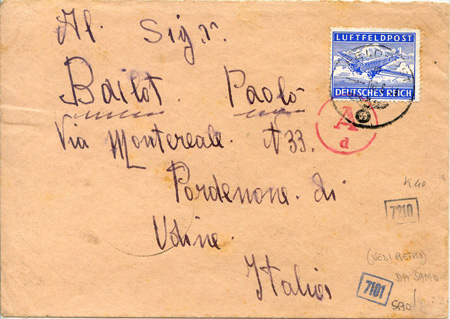 Al. Sigr.
LUFTFELDPOST
DEUTSCHES REICH
Bailot. Paolo
A
d
Via Montereale. N 33.
Pordenone. di
K40
7210
Udine.
(VEDI RETRO)
DA SAMO
7101
Italia